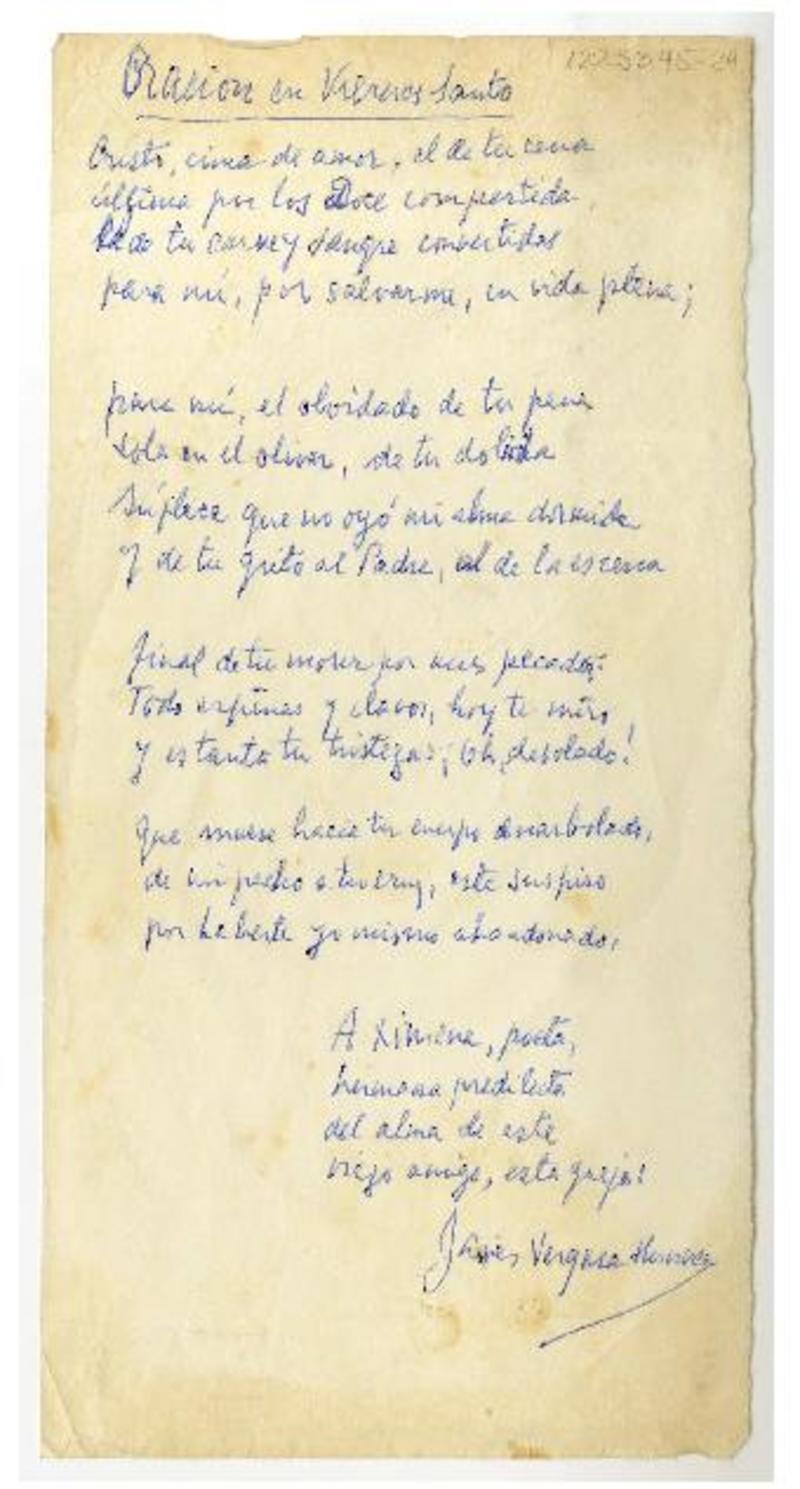 1225345-24
Oración en Viernes Santo
Cristo, cima de amor, el de tu cena
última por los Doce compartida,
la de tu carne y sangre convertidas
para mí, por salvarme, en vida plena;
para mí, el olvidado de tu pena
sola en el olivar, de tu dolida
súplica que no oyó mi alma dormida
y de tu grito al Padre, el de la escena
final de tu morir por mis pecados.
Todo espinas y clavos, hoy te miro,
y es tanta tu tristeza: ¡Oh, desolado!
que mueve hacia tu cuerpo enarbolado,
de mi pecho a tu cruz, este suspiro
por haberte yo mismo abandonado.
A Ximena, poeta,
hermana predilecta
del alma de este
viejo amigo, esta queja:
Javier Vergara Huneeus